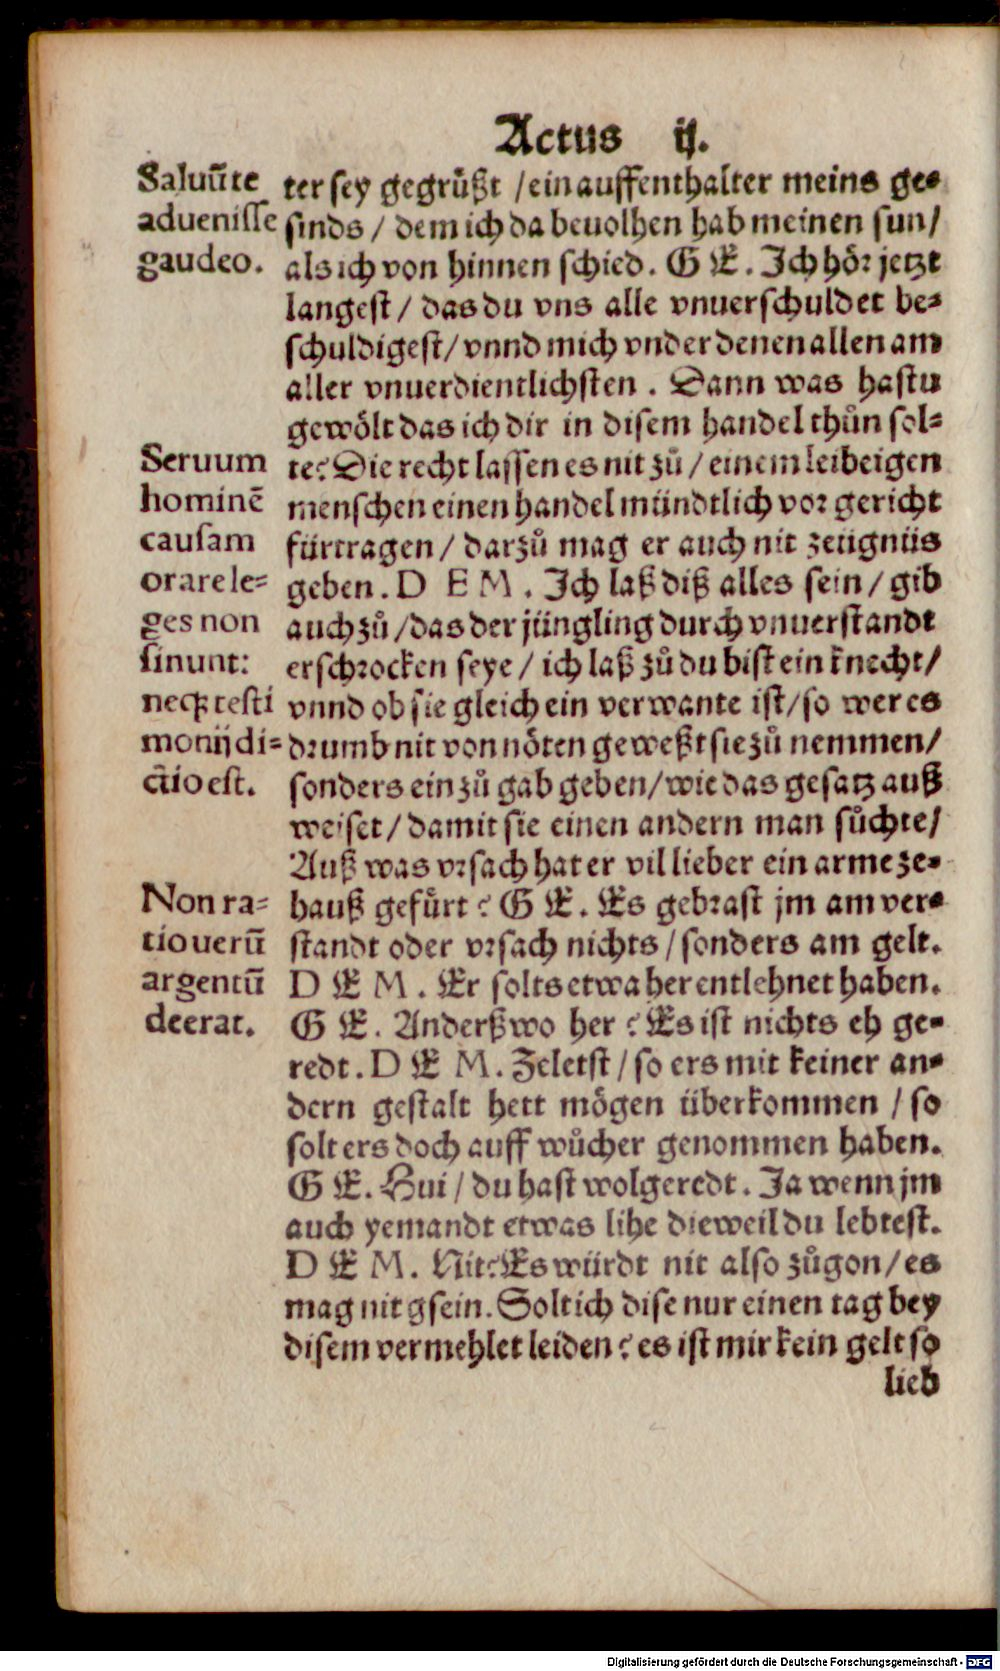 Actus ij.
Saluũ te
aduenisse
gaudeo.
Seruum
hominẽ
causam
orare le-
ges non
sinunt:
neqꝫ testi
monij di-
ctio est.
Non ra-
tio uerũ
argentũ
deerat.
ter sey gegrůßt / ein auffenthalter meins ge-
sinds / dem ich da beuolhen hab meinen sun /
als ich von hinnen schied. G E. Ich hör jetzt
langest / das du vns alle vnuerschuldet be-
schuldigest / vnnd mich vnder denen allen am
aller vnuerdientlichsten. Dann was hastu
gewölt das ich dir in disem handel thůn sol-
te? Die recht lassen es nit zů / einem leibeigen
menschen einen handel mündtlich vor gericht
fürtragen / darzů mag er auch nit zeügnüs
geben. D E M. Ich laß diß alles sein / gib
auch zů / das der jüngling durch vnuerstandt
erschrocken seye / ich laß zů du bist ein knecht /
vnnd ob sie gleich ein verwante ist / so wer es
drumb nit von nöten geweßt sie zů nemmen /
sonders ein zů gab geben / wie das gesatz auß
weiset / damit sie einen andern man sůchte /
Auß was vrsach hat er vil lieber ein arme ze-
hauß gefürt? G E. Es gebrast jm am ver-
standt oder vrsach nichts / sonders am gelt.
D E M. Er solts etwa her entlehnet haben.
G E. Anderßwo her? Es ist nichts eh ge-
redt. D E M. Zeletst / so ers mit keiner an-
dern gestalt hett mögen überkommen / so
solt ers doch auff wůcher genommen haben.
G E. Hui / du hast wol geredt. Ja wenn jm
auch yemandt etwas lihe dieweil du lebtest.
D E M. Nit? Es würdt nit also zůgon / es
mag nit gsein. Solt ich dise nur einen tag bey
disem vermehlet leiden? es ist mir kein gelt so
lieb
Digitalisierung gefördert durch die Deutsche Forschungsgemeinschaft - DFG